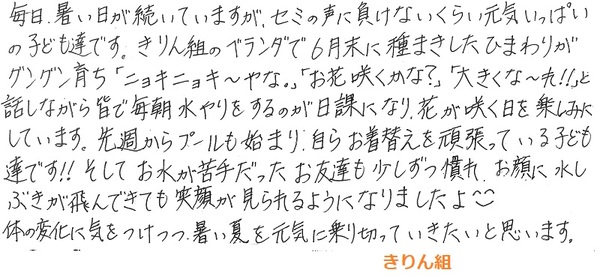 毎日、暑い日が続いていますが、セミの声に負けないくらい元気いっぱい
の子ども達です。きりん組のベランダで6月末に種まきしたひまわりが
グングン育ち「ニョキニョキ〜やな。」「お花咲くかな?」「大きくな〜れ!!」と
話しながら皆で毎朝水やりをするのが日課になり、花が咲く日を楽しみに
しています。先週からプールも始まり、自らお着替えを頑張っている子ども
達です!! そしてお水が苦手だったお友達も少しずつ慣れ、お顔に水し
ぶきが飛んできても笑顔が見られるようになりましたよ
体の変化に気をつけつつ、暑い夏を元気に乗り切っていきたいと思います。
きりん組